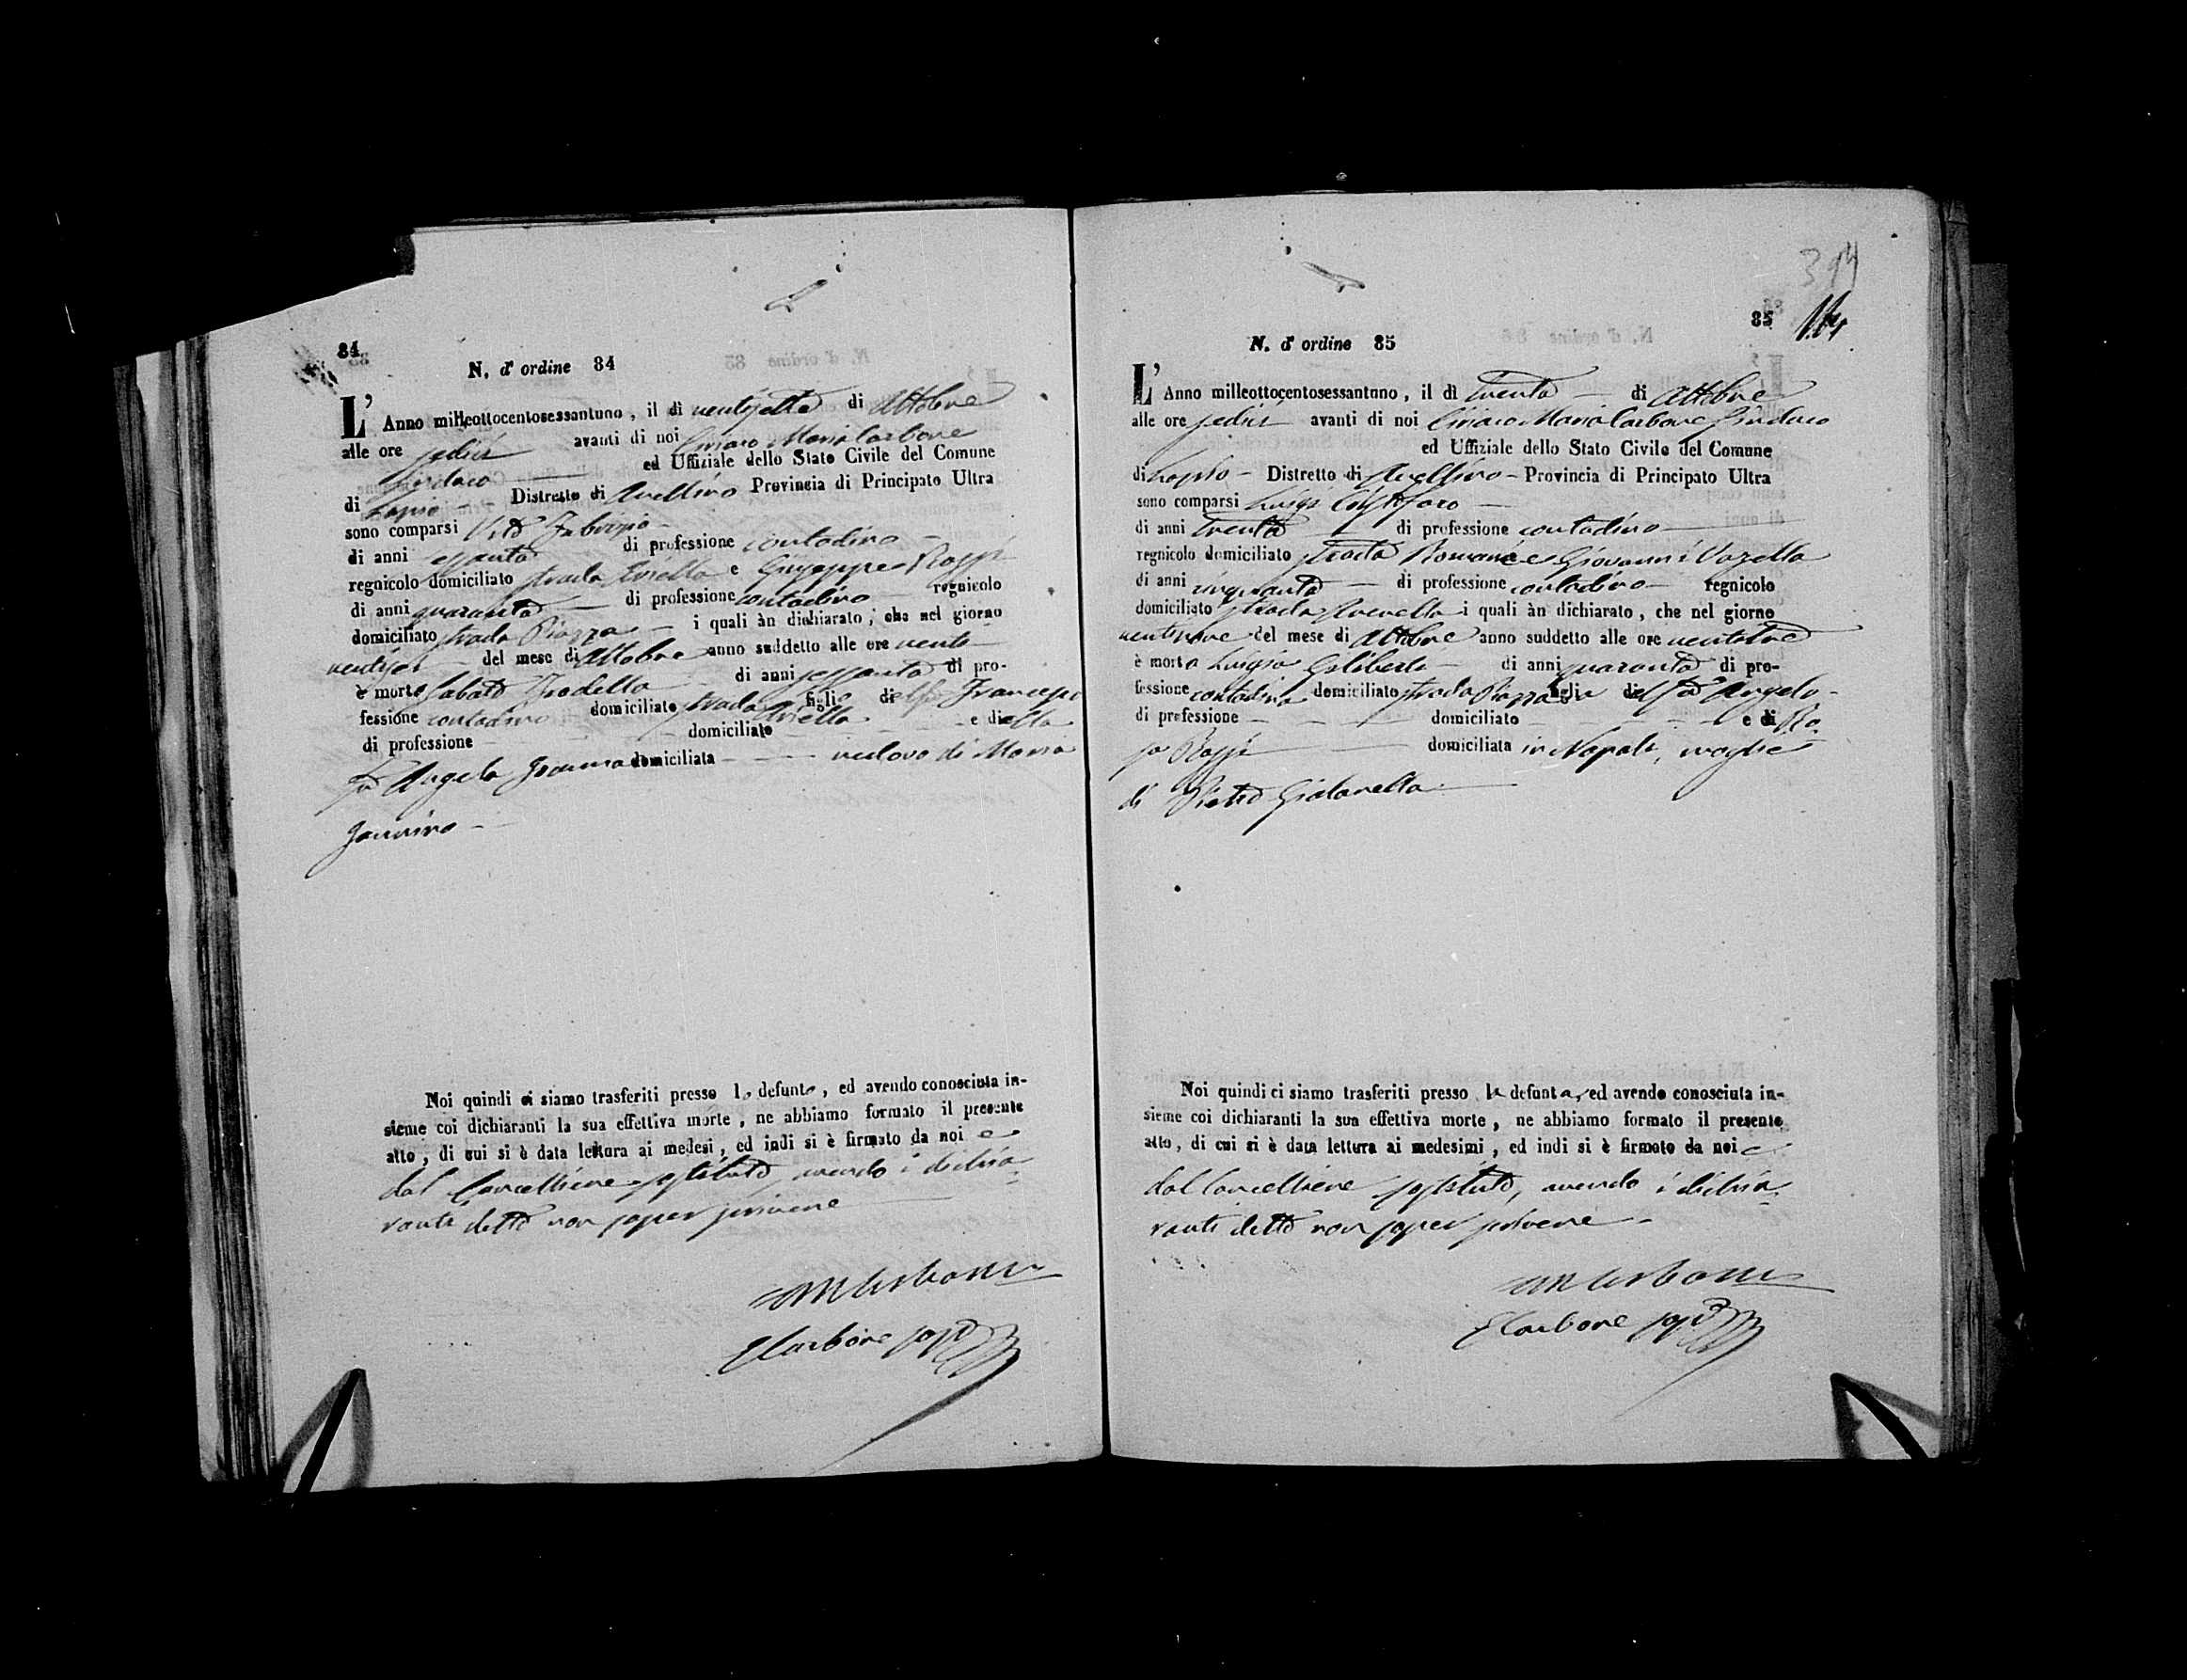 84
N. d' ordine 84
L' Anno milleottocentosessantuno, il dì ventisette di Ottobre
alle ore sedici avanti di noi Ciriaco Maria Carbone
Sindaco ed Uffiziale dello Stato Civile del Comune
di Lapio - Distretto di Avellino Provincia di Principato Ultra
sono comparsi Vito Fabrizio -
di anni essanta di professione contadino -
regnicolo domiciliato strada e Giuseppe Rossi
di anni quaranta - di professione contadino - regnicolo
domiciliato strada Piazza - i quali àn dichiarato, che nel giorno
ventisei - del mese di Ottobre anno suddetto alle ore venti -
è morto Sabato di anni sessanta di pro-
fessione contadino domiciliato strada figlio del fu Francesco
di professione - domiciliato - e di ella
fu Angela domiciliata - vedovo di Maria
Jannino -
Noi quindi ci siamo trasferiti presso lo defunto, ed avendo conosciuta in-
sieme coi dichiaranti la sua effettiva morte, ne abbiamo formato il presente
atto, di cui si è data lettura ai medesi, ed indi si è firmato da noi e
dal Cancelliere sostituto, avendo i dichia-
ranti detto non saper scrivere
CM Carbone
E Carbone sost
394
85
N. d' ordine 85
L' Anno milleottocentosessantuno, il dì trenta - di Ottobre
alle ore sedici avanti di noi Ciriaco Maria Carbone Sindaco
ed Uffiziale dello Stato Civile del Comune
di Lapio - Distretto di Avellino - Provincia di Principato Ultra
sono comparsi Luigi Cristofaro -
di anni trenta - di professione contadino -
regnicolo domiciliato strada Romano e Giovanni Vozella
di anni cinquanta - di professione contadino - regnicolo
domiciliato strada i quali àn dichiarato, che nel giorno
ventinove del mese di Ottobre anno suddetto alle ore ventitre
è morta Luigia Geliberto - di anni quaranta di pro-
fessione contadina domiciliato strada Piazza figlia del fu Angelo -
di professione - domiciliato - e di Ro-
sa Rossi - domiciliata in Napoli, moglie
di Pietro
Noi quindi ci siamo trasferiti presso la defunta, ed avendo conosciuta in-
sieme coi dichiaranti la sua effettiva morte, ne abbiamo formato il presente
atto, di cui si è data lettura ai medesimi, ed indi si è firmato da noi e
dal Cancelliere sostituto, avendo i dichia-
ranti detto non saper scrivere -
CM Carbone
E Carbone sost